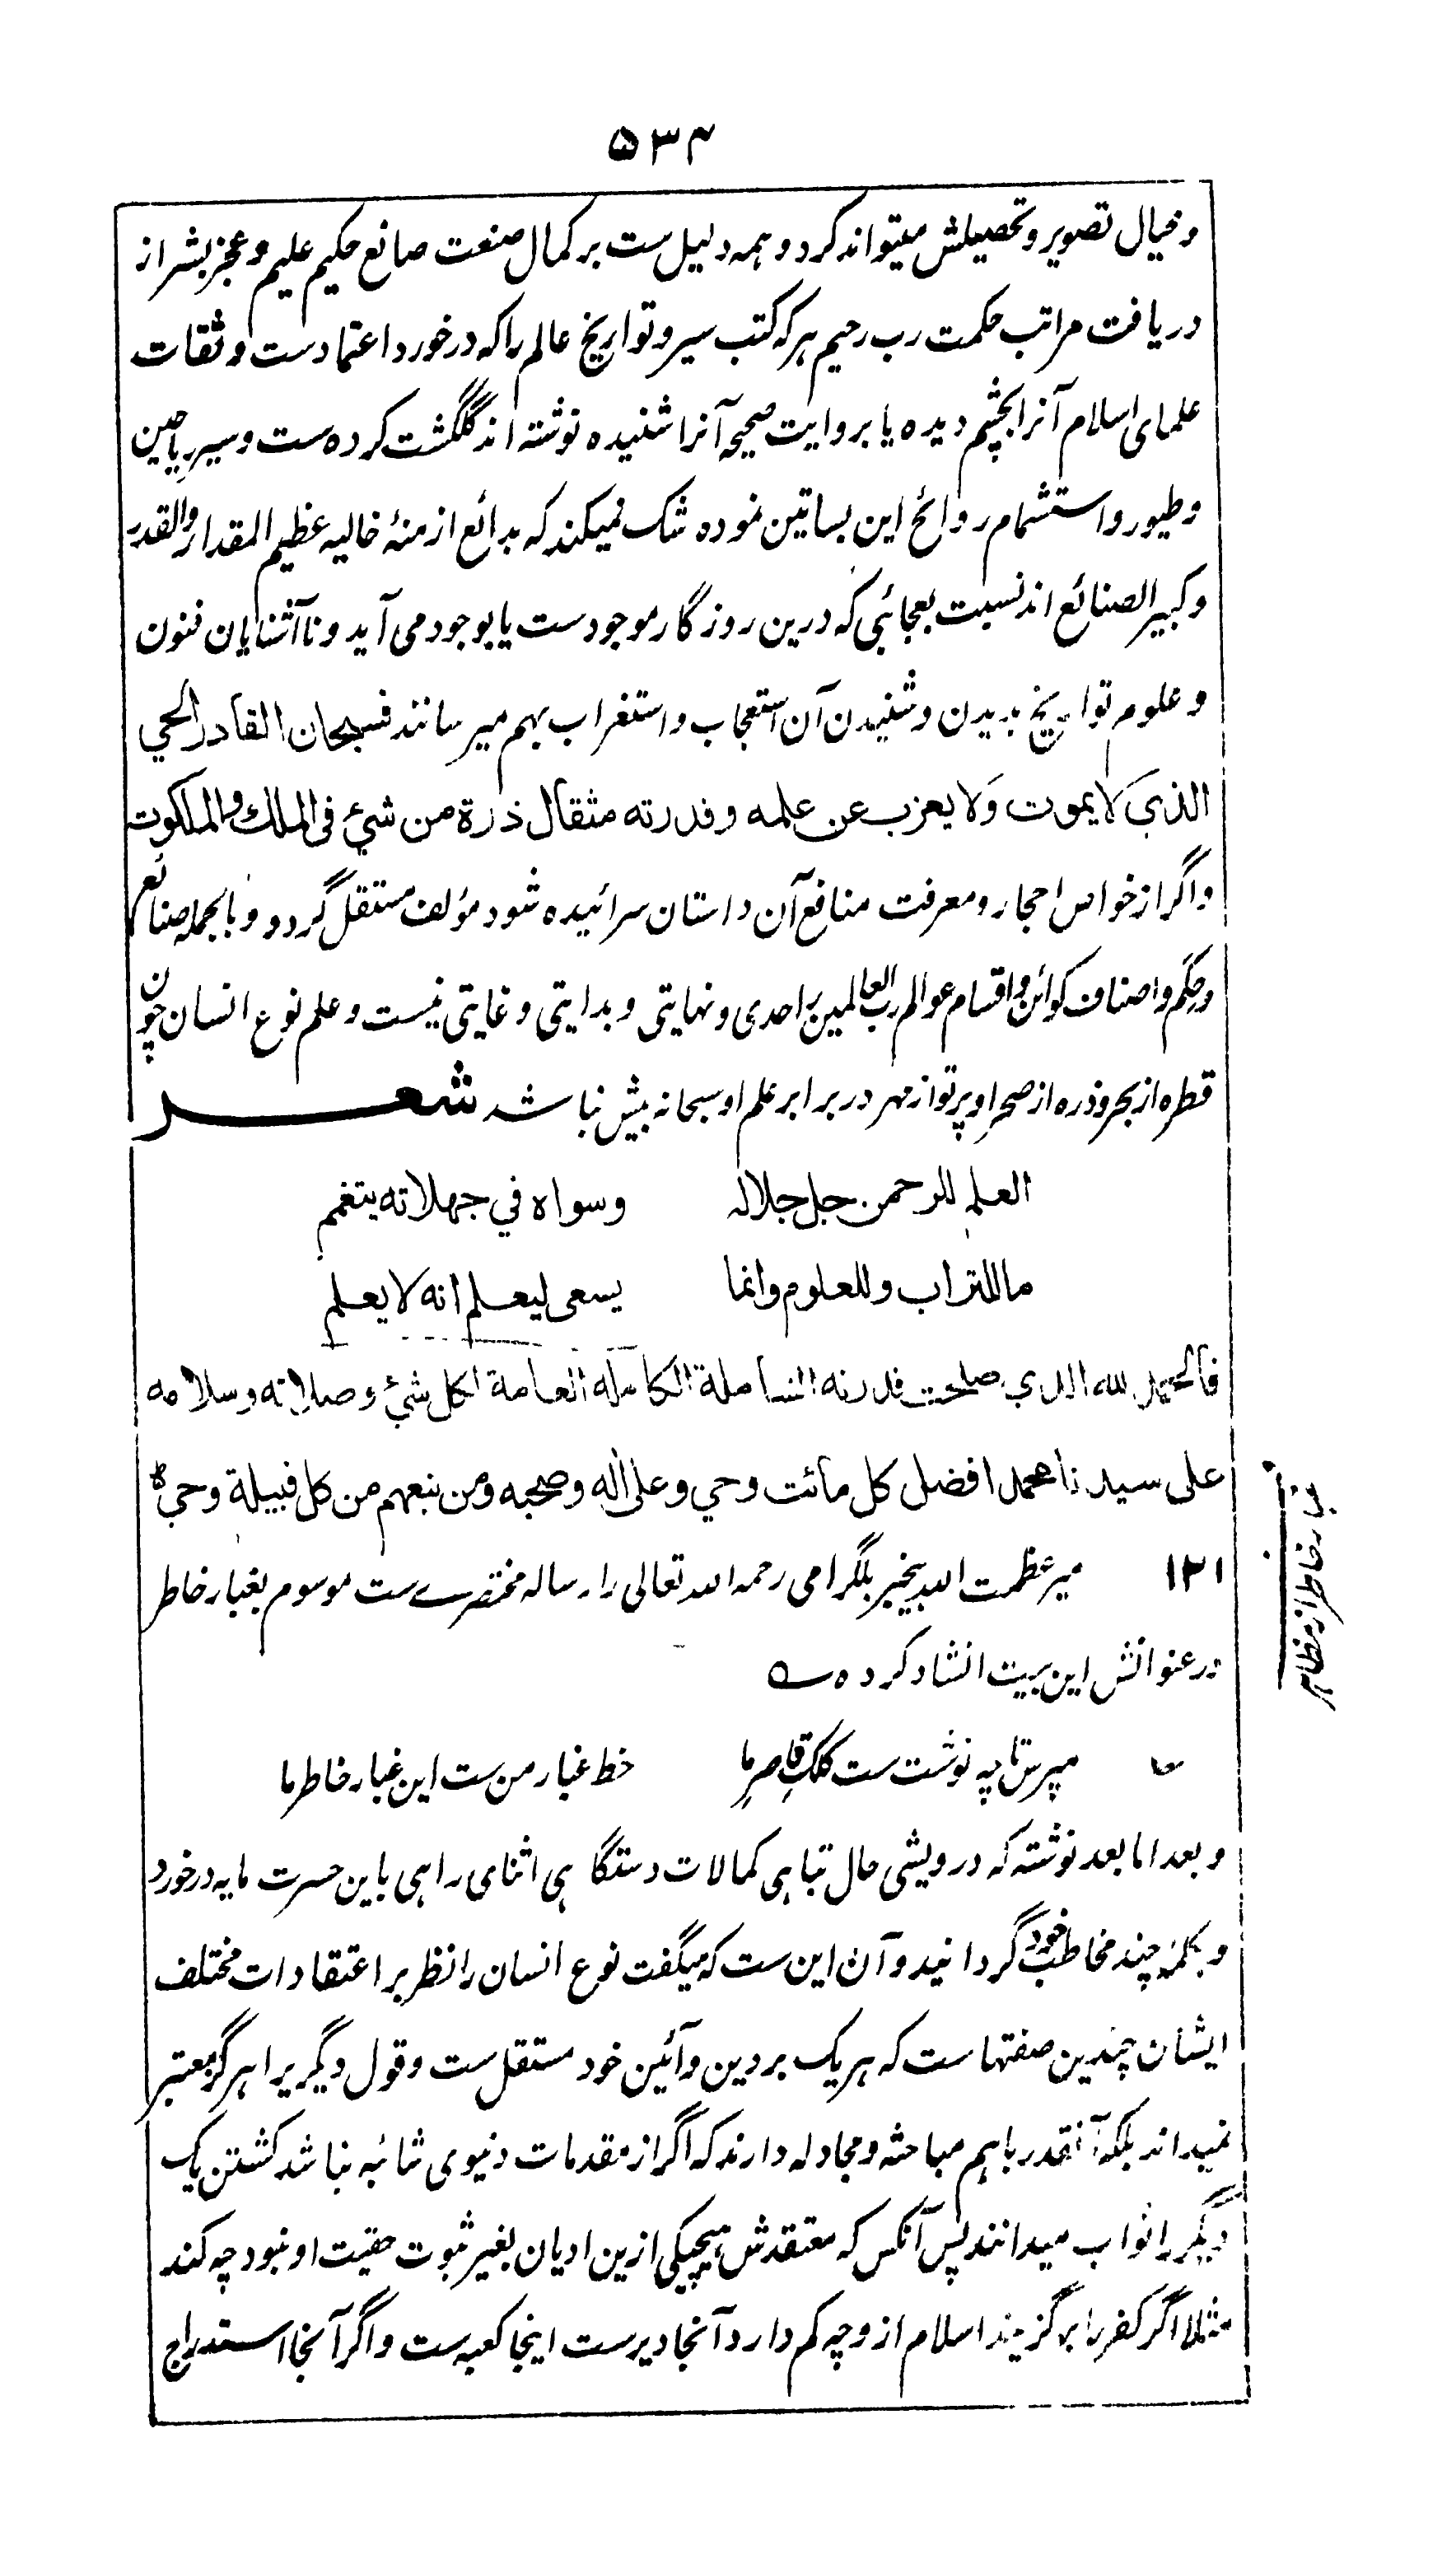 ۵۳۴
و خیال تصویر و تحصیلش میتواند کرد و همه دلیل ست بر کمال صنعت صانع حکیم علیم و عجز بشر از
دریافت مراتب حکمت رب رحیم هر که کتب سیر و تواریخ عالم را که درخورد اعتمادست و ثقات
علمای اسلام آنرا بچشم دیده یا بروایت صحیحه آنرا شنیده نوشته اند گلگشت کرده ست و سیر ریاحین
و طیور و استشمام روائح این بساتین نموده شک نمیکند که بدائع ازمنهٔ خالیه عظیم المقدار والقدر
و کبیر الصنائع اند نسبت بعجائبی که درین روزگار موجودست یا بوجود می آید و ناآشنایان فنون
و علوم تواریخ بدیدن و شنیدن آن استعجاب و استغراب بهم میرسانند فسبحان القادر الحي
الذي لا يموت ولا يعزب عن علمه وقدرته مثقال ذرة من شيء في الملك والملكوت
و اگر از خواص احجار و معرفت منافع آن داستان سرائیده شود مؤلف مستقل گردد و بالجمله صنائع
و حِکَم و اصناف کوائن و اقسام عوالم رب العالمین را حدی و نهایتی و بدایتی و غایتی نیست و علم نوع انسان چون
قطره از بحر و ذره از صحرا و پرتو از مهر در برابر علم او سبحانه بیش نباشد شعر
العلم للرحمن جل جلاله وسواه في جهلاته يتغمم
ما للتراب وللعلوم وانما يسعى ليعلم انه لا يعلم
فالحمد لله الذي صلحت قدرته الشاملة الكاملة العامة لكل شيء وصلاته وسلامه
على سيدنا محمد افضل كل مائت وحي وعلى اله وصحبه ومن تبعهم من كل قبيلة وحي
۱۲۱ میر عظمت الله بیخبر بلگرامی رحمه الله تعالی را رساله مختصرے ست موسوم بغبار خاطر
در عنوانش این بیت انشاد کرده
مپرس تا چه نوشت ست کلک قاصر ما خط غبار من ست این غبار خاطر ما
و بعد اما بعد نوشته که درویشی حال تباهی کمالات دستگاهی اثنای راهی باین حسرت مایه درخورد
و بکلمهٔ چند مخاطب خود گردانید و آن این ست که میگفت نوع انسان را نظر بر اعتقادات مختلف
ایشان چندین صنفتهاست که هر یک بر دین و آئین خود مستقل ست و قول دیگریرا هرگز معتبر
نمیداند بلکه آنقدر باهم مباحثه و مجادله دارند که اگر از مقدمات دنیوی شائبه نباشد کشتن یک
دیگر را ثواب میدانند پس آنکس که معتقدش هیچیکی ازین ادیان بغیر ثبوت حقیت او نبود چه کند
مثلا اگر کفر را برگزیند اسلام از و چه کم دارد آنجا دیرست اینجا کعبه ست و اگر آنجا استدراج
غبار خاطر از مظاہر